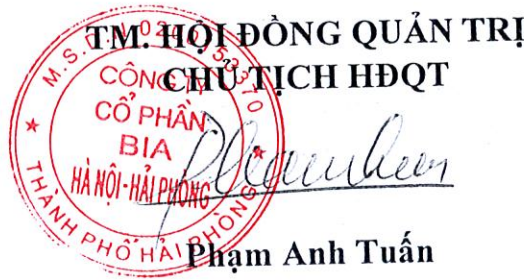 TM. HỘI ĐỒNG QUẢN TRỊ
CHỦ TỊCH HĐQT
CÔNG TY
CỔ PHẦN
BIA
HÀ NỘI-HẢI PHÒNG
THÀNH PHỐ HẢI PHÒNG
Phạm Anh Tuấn